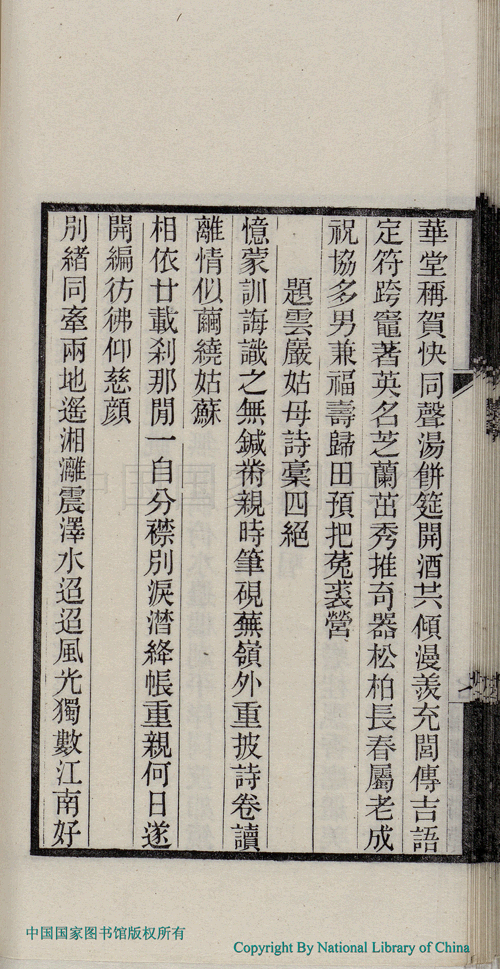 華堂稱賀快同聲湯餅筵開酒共傾漫羡充閭傳吉語
定符跨竈著英名芝蘭茁秀推奇器松柏長春屬老成
祝協多男兼福壽歸田預把菟裘營
題雲巖姑母詩稾四絕
憶蒙訓誨識之無鍼黹親時筆硯蕪嶺外重披詩卷讀
離情似繭繞姑蘇
相依廿載剎那閒一自分襟別淚潸絳帳重親何日遂
開編彷彿仰慈顏
別緒同牽兩地遙湘灕震澤水迢迢風光獨數江南好
中国国家图书馆版权所有
Copyright By National Library of China